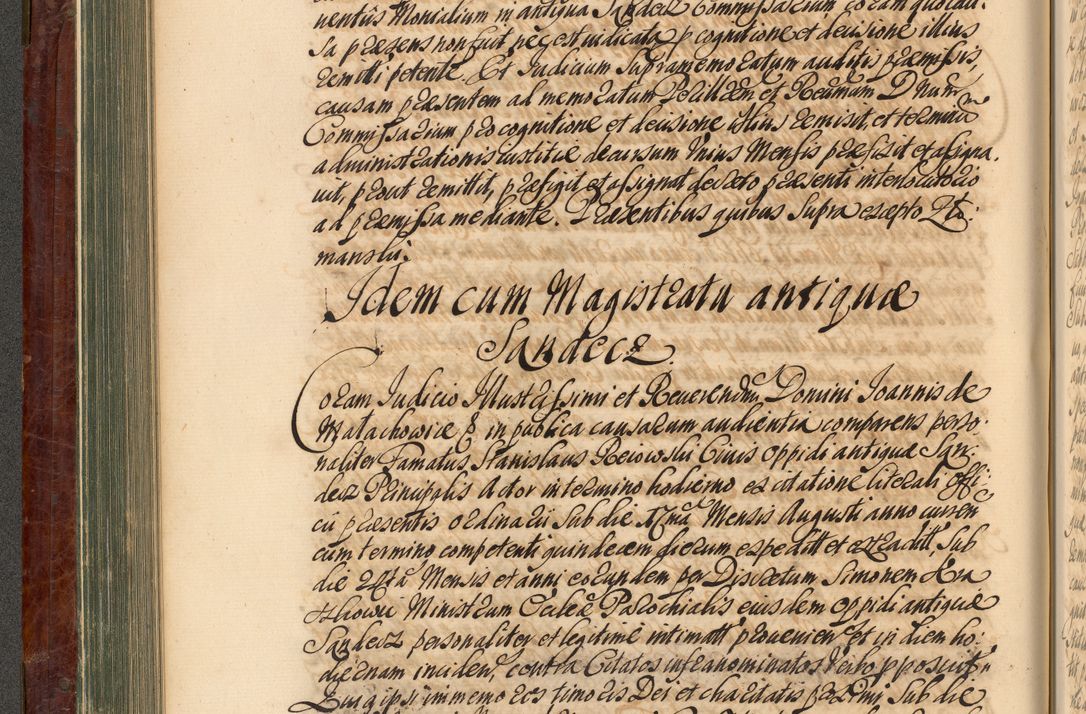 uentûs Monialium in antiqua Sandecz Commissarium coram quo cau:
sa præsens non fuit nec est iudicata p cognitione et decisione illius
remitti petente. Et Iudicium supramemoratum auditis præmissis,
causam præsentem ad memoratum Perillrem et Reumum D Num̃
Commissarium pro cognitione et decisione istius remisit, et terminũ
administrationis iustitiæ decursum Vnius Mensis præfixit et assigna.
uit, prout remittit, præfigit et assignat decreto præsenti interlocutorio
ad præmissa mediante. Præsentibus quibus supra excepto Ztto:
manski.
Idem cum Magistratu antiquæ
Sandecz.
Coram Iudicio Illustrissimi et Reuerendmi Domini Ioannis de
Małachowice &c in publica causarum audientia comparens perso:
naliter Famatus Stanislaus Reiowski Ciuis oppidi antiquæ San:
decz Principalis Actor in termino hodierno ex citatione literali offi:
cii præsentis ordinarii sub die 17ma Mensis Augusti anno curren
cum termino competenti quindecem dierum expeditt et extraditt, sub
die 24ta Mensis et anni eorundem per Discretum Simonem
Ministrum Eccleæ Parochialis eiusdem oppidi antiquæ
Sandecz personaliter et legitime intimatt proueniente et in diem ho:
diernam inciden, contra Citatos infranominatos verbo pposuit.
Quia ipsi immemores timoris Dei et charitatis prximi sub die